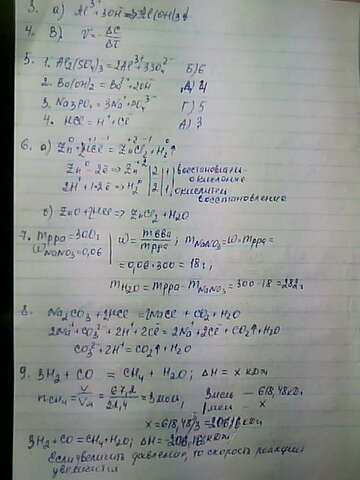 3. а) Al³⁺ + 3OH⁻ => Al(OH)₃↓
4. В) V = - ΔC/Δτ
5. 1. Al₂(SO₄)₃ = 2Al³⁺ + 3SO₄²⁻ Б) 6
2. Ba(OH)₂ = Ba²⁺ + 2OH⁻ Д) 4
3. Na₃PO₄ = 3Na⁺ + PO₄³⁻ Г) 5
4. HCl = H⁺ + Cl⁻ А) 3
6. а) Zn⁰ + 2H⁺¹Cl⁻¹ = Zn⁺²Cl₂⁻¹ + H₂⁰↑
Zn⁰ - 2e => Zn⁺² | 2 | 1 восстановитель
окисление
2H⁺ + 2e => H₂⁰ | 2 | 1 окислитель
восстановление
с) ZnO + 2HCl => ZnCl₂ + H₂O
7. mрра = 300г | W = mвва/mрра; mNaNO₃ = W · mрра =
WNaNO₃ = 0,06 | = 0,06 · 300 = 18г;
mH₂O = mрра - mNaNO₃ = 300 - 18 = 282г
8. Na₂CO₃ + 2HCl = 2NaCl + CO₂ + H₂O
2Na⁺ + CO₃²⁻ + 2H⁺ + 2Cl⁻ = 2Na⁺ + 2Cl⁻ + CO₂↑ + H₂O
CO₃²⁻ + 2H⁺ = CO₂↑ + H₂O
9. 3H₂ + CO = CH₄ + H₂O; ΔH = x кДж
nCH₄ = V/Vм = 67,2/22,4 = 3 моль; 3моль — 618,48кДж
1моль — x
x = 618,48/3 = 206,16 кДж
3H₂ + CO = CH₄ + H₂O; ΔH = -206,16 кДж
Если увеличить давление, то скорость реакции
увеличится